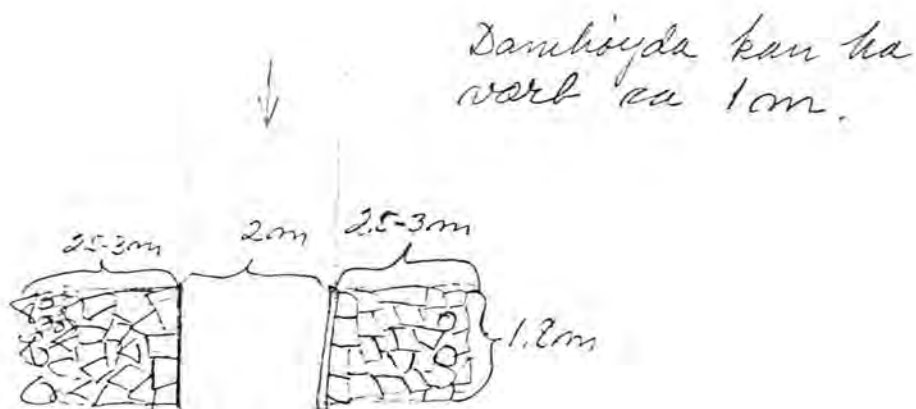 Damhøyda kan ha
vært ca 1m.
2.5-3m
2m
2,5-3m
1.2m